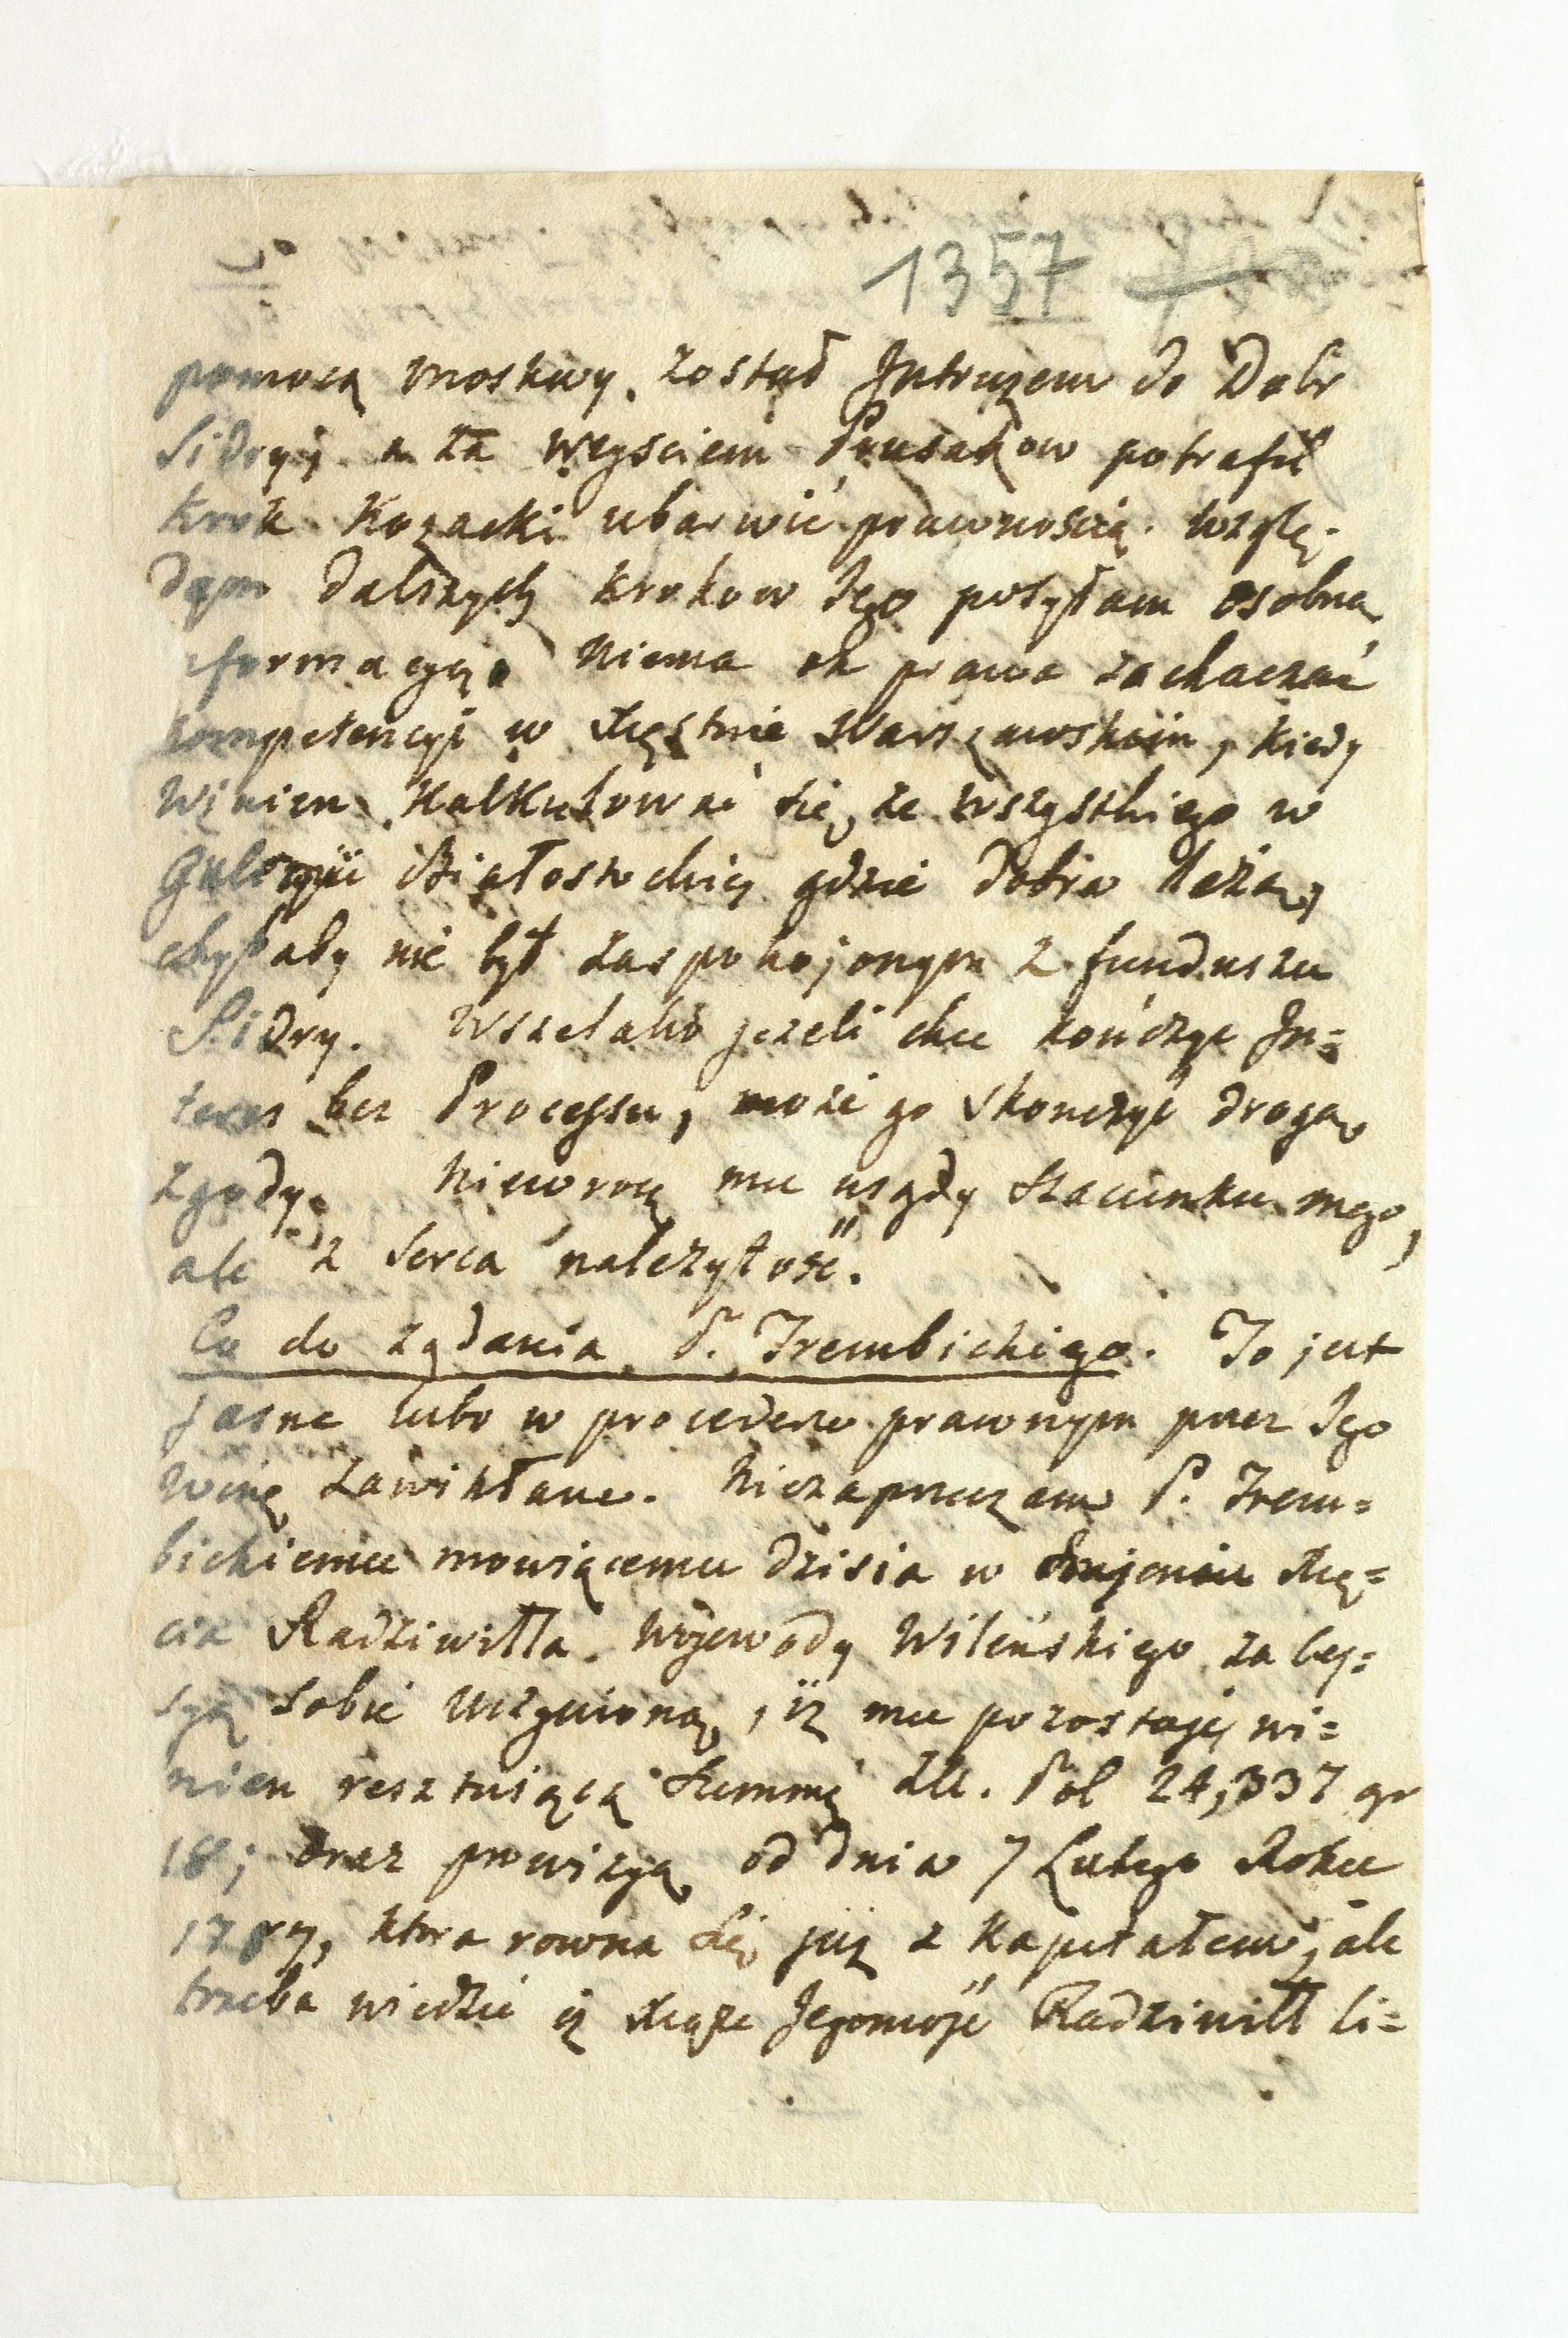 1357
pomocą moskwy, został Jntruzem do Dobr
Sidry; a za weysciem Prusakow potrafił
krok Kozacki ubarwić prawnością. Wzglę-
dem dalszych krokow Jego posyłam osobną
nformacyą. Niema on prawa zachaczać
kompetencyi w Xięstwie Warszawskim, kiedy
winien kalkulować się ze wszystkiego w
Białostockiey gdzie dobra leżą,
chybaby nie był zaspokojonym z funduszu
Sidry. Wszelako jeżeli chce kończyc Jn=
teres bez Processu, może go skonczyć drogą
zgody. Niewrocę mu nigdy Szacunku mego,
ale z serca należytość.
Co do żądania P. Trembickiego. To jest
jasne lubo w procederze prawnym przez Jego
winę zawikłane. Niezaprzeczam P. Trem=
bickiemu mowiącemu dzisia w Jmieniu Xię=
cia Radziwiłła Wojewody Wileńskiego za ces=
syą sobie uczynioną, iż mu pozostaję wi=
nien resztuiącą Summę Zll. Pol 24,337 gr
18; oraz prowizyą od dnia 7 Lutego Roku
, ktora rowna się już z Kapitałem; ale
trzeba wiedzić iż Xiąże Jegomość Radziwiłł li=